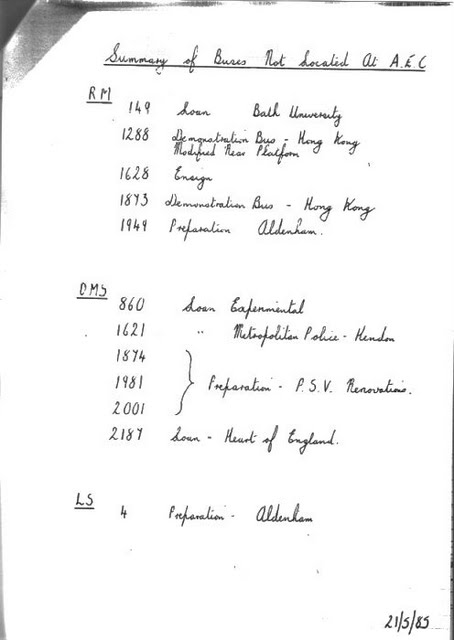 Summary of Buses Not Located At A.E.C
RM
149 Loan Bath University
1288 Demonstration Bus - Hong Kong
Modified Rear Platform
1628 Ensign
1873 Demonstration Bus - Hong Kong
1949 Preparation Aldenham.
DMS
860 Loan Experimental
1621 " Metropolitan Police - Hendon
1874
1981 Preparation - P.S.V. Renovations.
2001
2187 Loan - Heart of England.
LS
4 Preparation - Aldenham
21/5/85